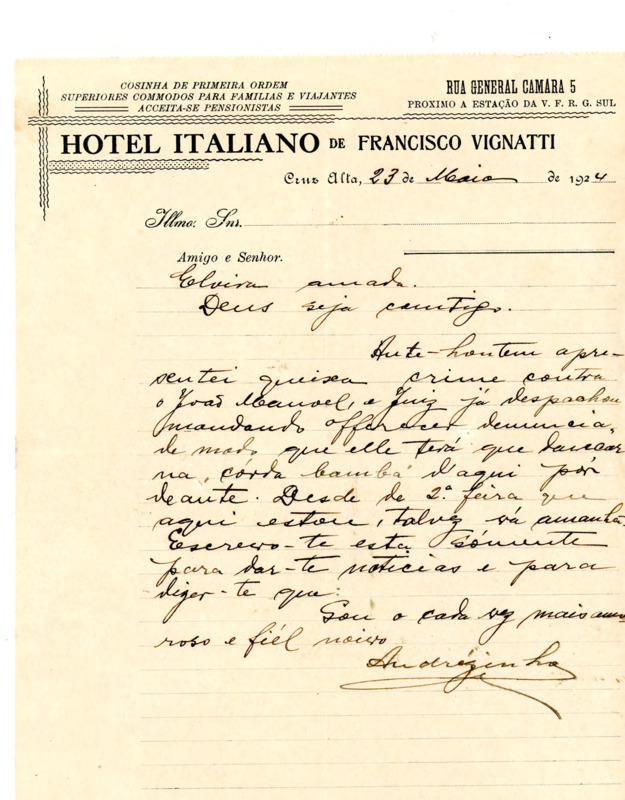 COSINHA DE PRIMEIRA ORDEM
SUPERIORES COMMODOS PARA FAMILIAS E VIAJANTES
ACCEITA-SE PENSIONISTAS
RUA GENERAL CAMARA 5
PROXIMO A ESTAÇÃO DA V. F. R. G. SUL
HOTEL ITALIANO DE FRANCISCO VIGNATTI
Cruz Alta, 23 de Maio de 1924
Illmo. Snr.
Amigo e Senhor.
Elvira amada.
Deus seja comtigo.
Ante-hontem apre-
sentei queixa crime contra
o João Manoel, e Juiz já despachou
mandando offerecer denuncia,
de modo que elle terá que dansar
na corda bamba d'aqui por
deante. Desde de 2.ª feira que
aqui estou, talvez vá amanhã.
Escrevo-te esta sómente
para dar-te noticias e para
dizer-te que:
Sou o cada vez mais amo-
roso e fiél noivo
Andrézinho